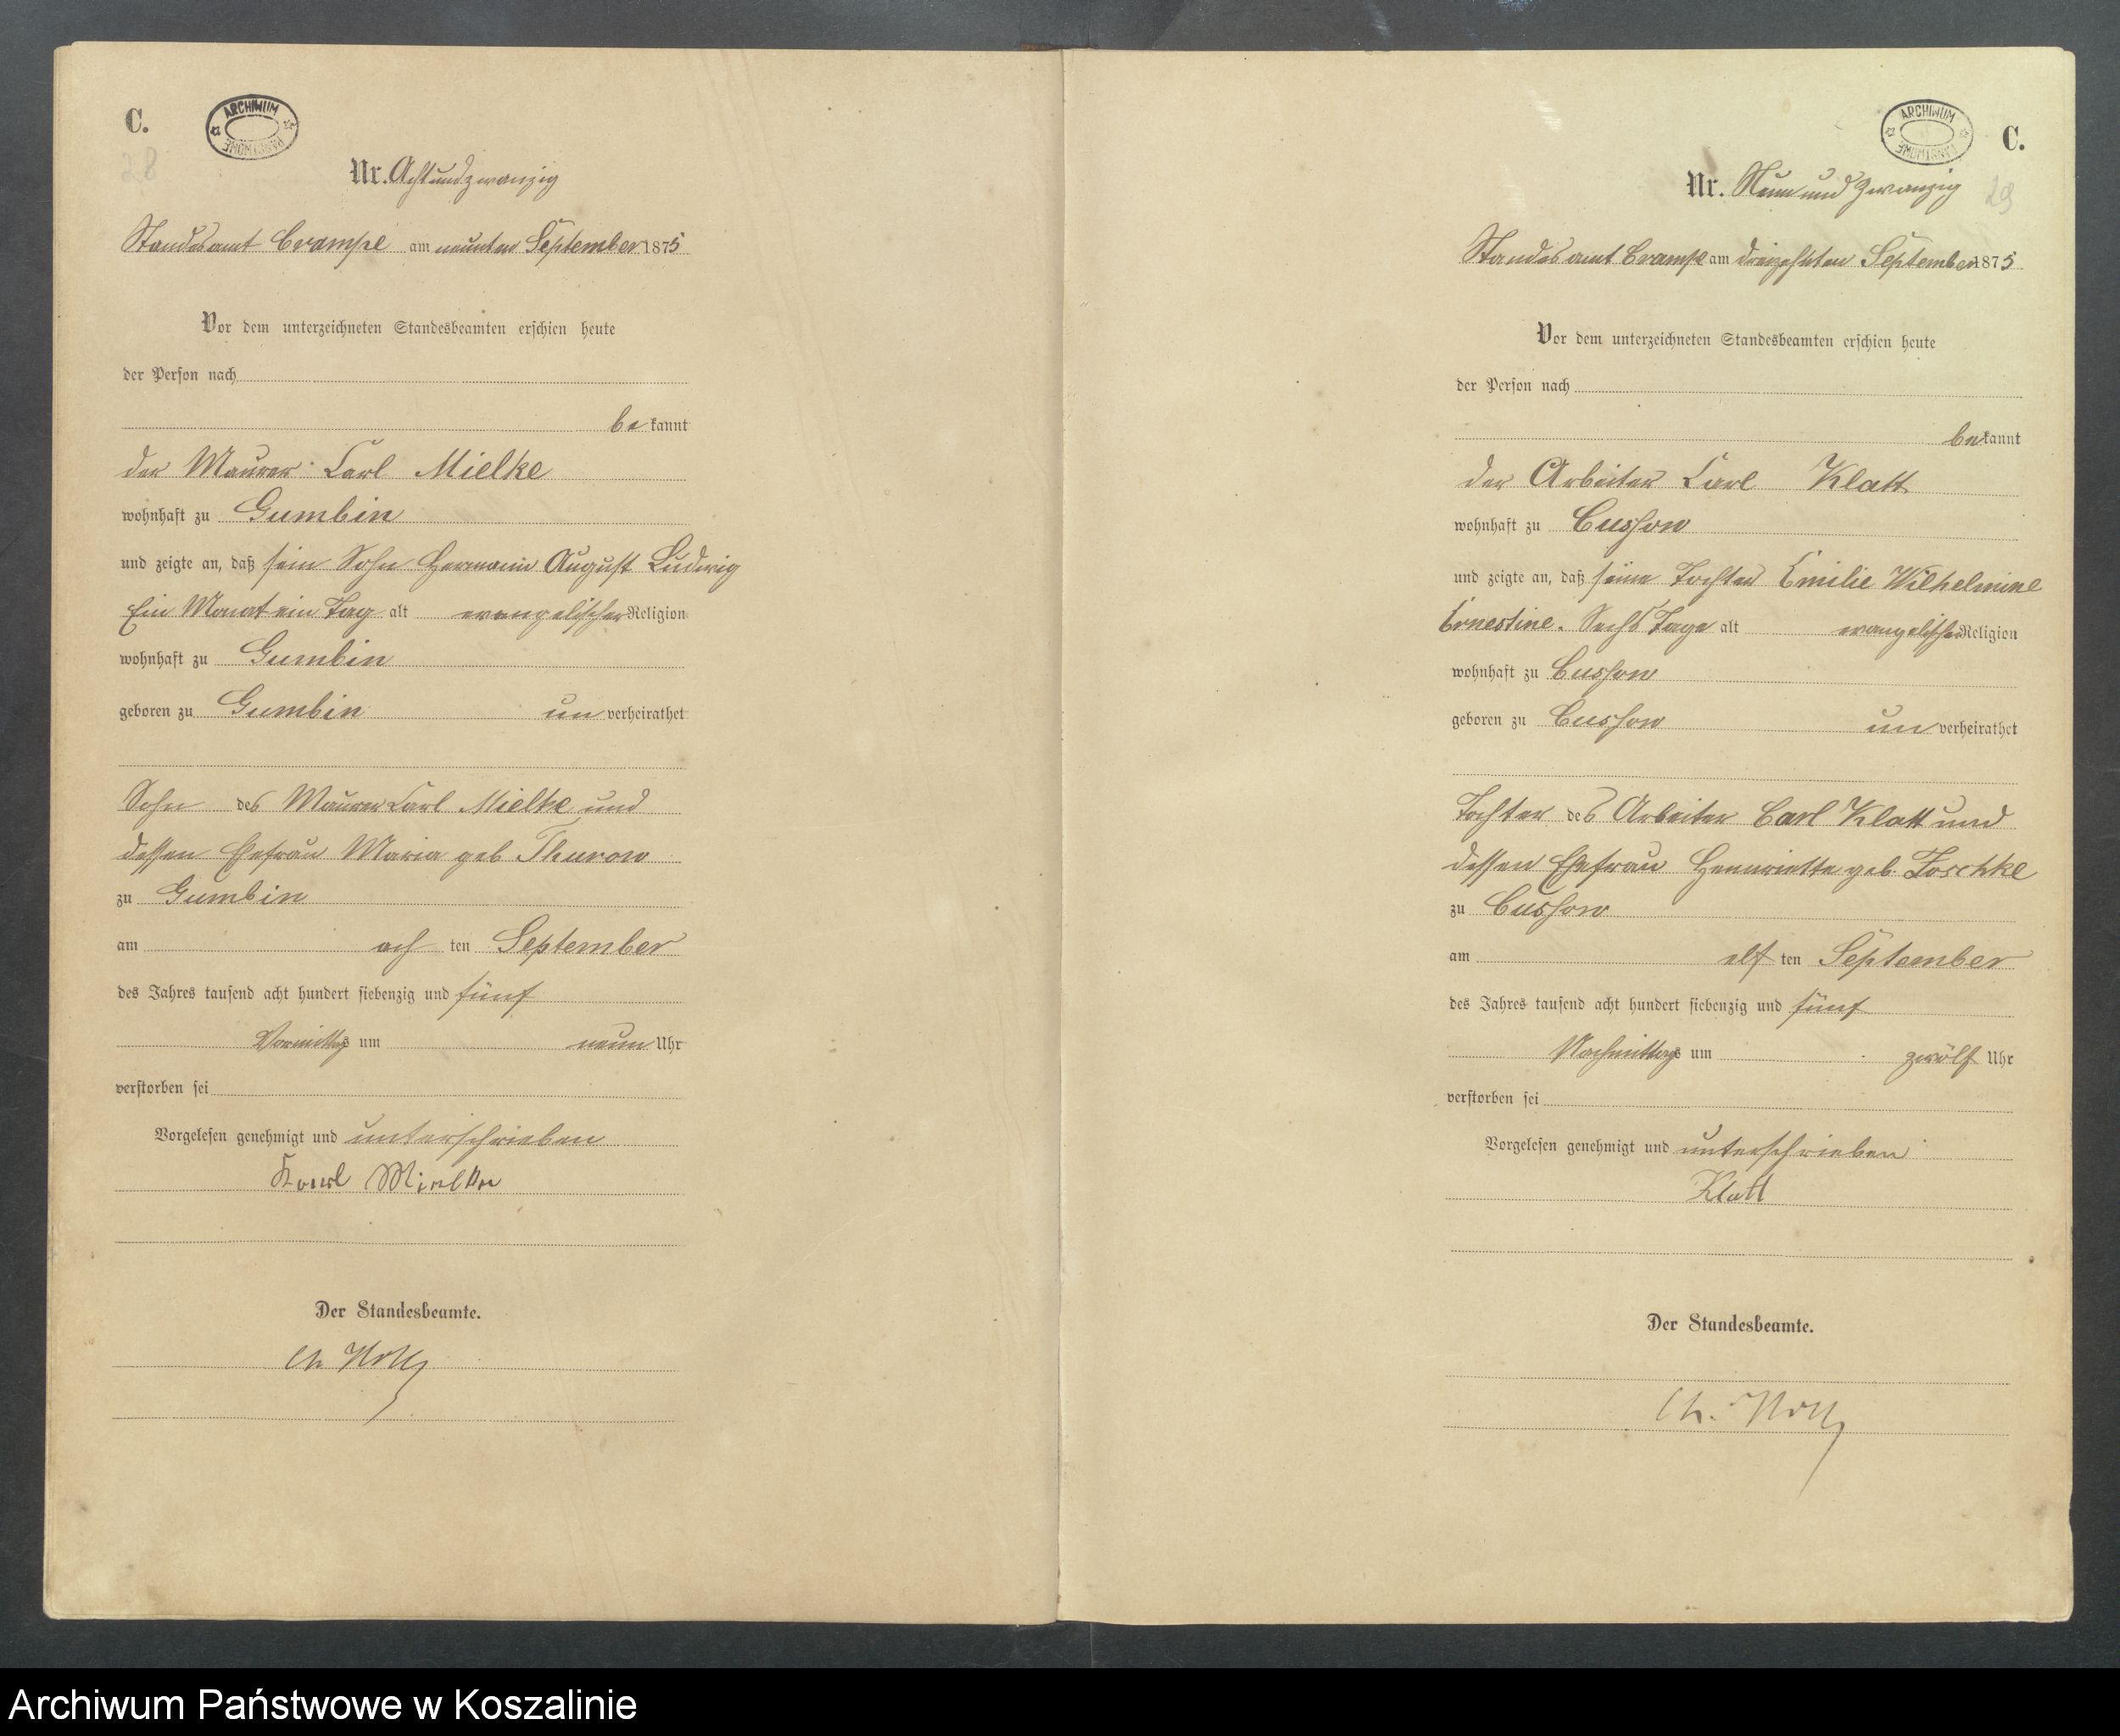 C.
ARCHIWUM PAŃSTWOWE
28
Nr. Achtundzwanzig
Standesamt Crampe am neunten September 1875
Vor dem unterzeichneten Standesbeamten erschien heute
der Person nach
be kannt
der Maurer Carl Mielke
wohnhaft zu Gumbin
und zeigte an, daß sein Sohn Hermann August Ludwig
Ein Monat ein Tag alt evangelischer Religion
wohnhaft zu Gumbin
geboren zu Gumbin un verheirathet
Sohn des Maurer Carl Mielke und
dessen Ehefrau Maria geb. Thurow
zu Gumbin
am ach ten September
des Jahres tausend acht hundert siebenzig und fünf
Vormittags um neun Uhr
verstorben sei
Vorgelesen genehmigt und unterschrieben
Karl Mielke
Der Standesbeamte.
ARCHIWUM PAŃSTWOWE
C.
Nr. Neun und Zwanzig
29
Standesamt Crampe am dreizehnten September 1875
Vor dem unterzeichneten Standesbeamten erschien heute
der Person nach
be kannt
der Arbeiter Carl Klatt
wohnhaft zu Cussow
und zeigte an, daß seine Tochter Emilie Wilhelmine
Ernestine. Sechs Tage alt evangelischer Religion
wohnhaft zu Cussow
geboren zu Cussow un verheirathet
Tochter des Arbeiter Carl Klatt und
dessen Ehefrau Henriette geb. Joschke
zu Cussow
am elf ten September
des Jahres tausend acht hundert siebenzig und fünf
Nachmittags um zwölf Uhr
verstorben sei
Vorgelesen genehmigt und unterschrieben
Klatt
Der Standesbeamte.
Archiwum Państwowe w Koszalinie